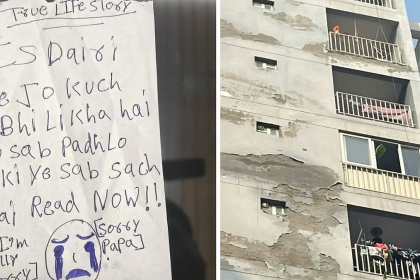 True Life Story
IS Dairi
e Jo kuch
Bhi Likha hai
sab Padhlo
ki ye sab sach
ai Read NOW!!
[I'm [Sorry
lly Papa]
rry]